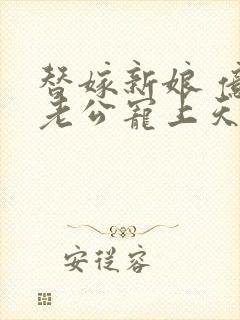 替嫁新娘 億
老公寵上天
安從容